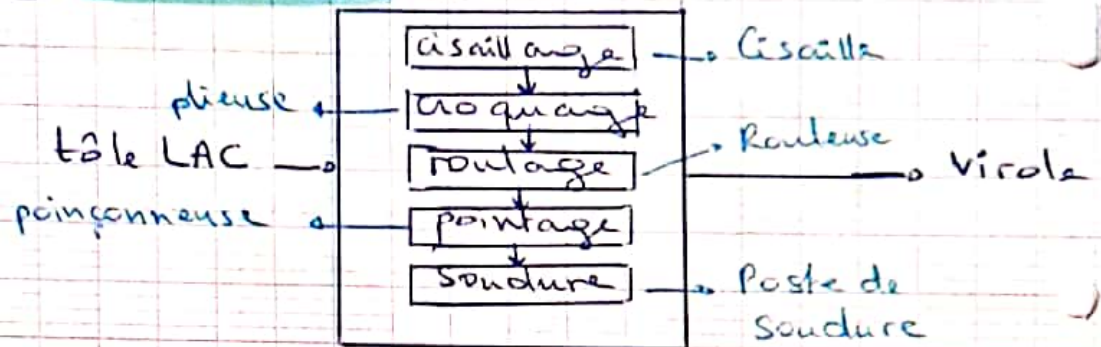 cisaillange
Cisaille
plieuse
croquage
tôle LAC
roulage
Rouleuse
Virole
poinçonneuse
pointage
Soudure
Poste de
Soudure